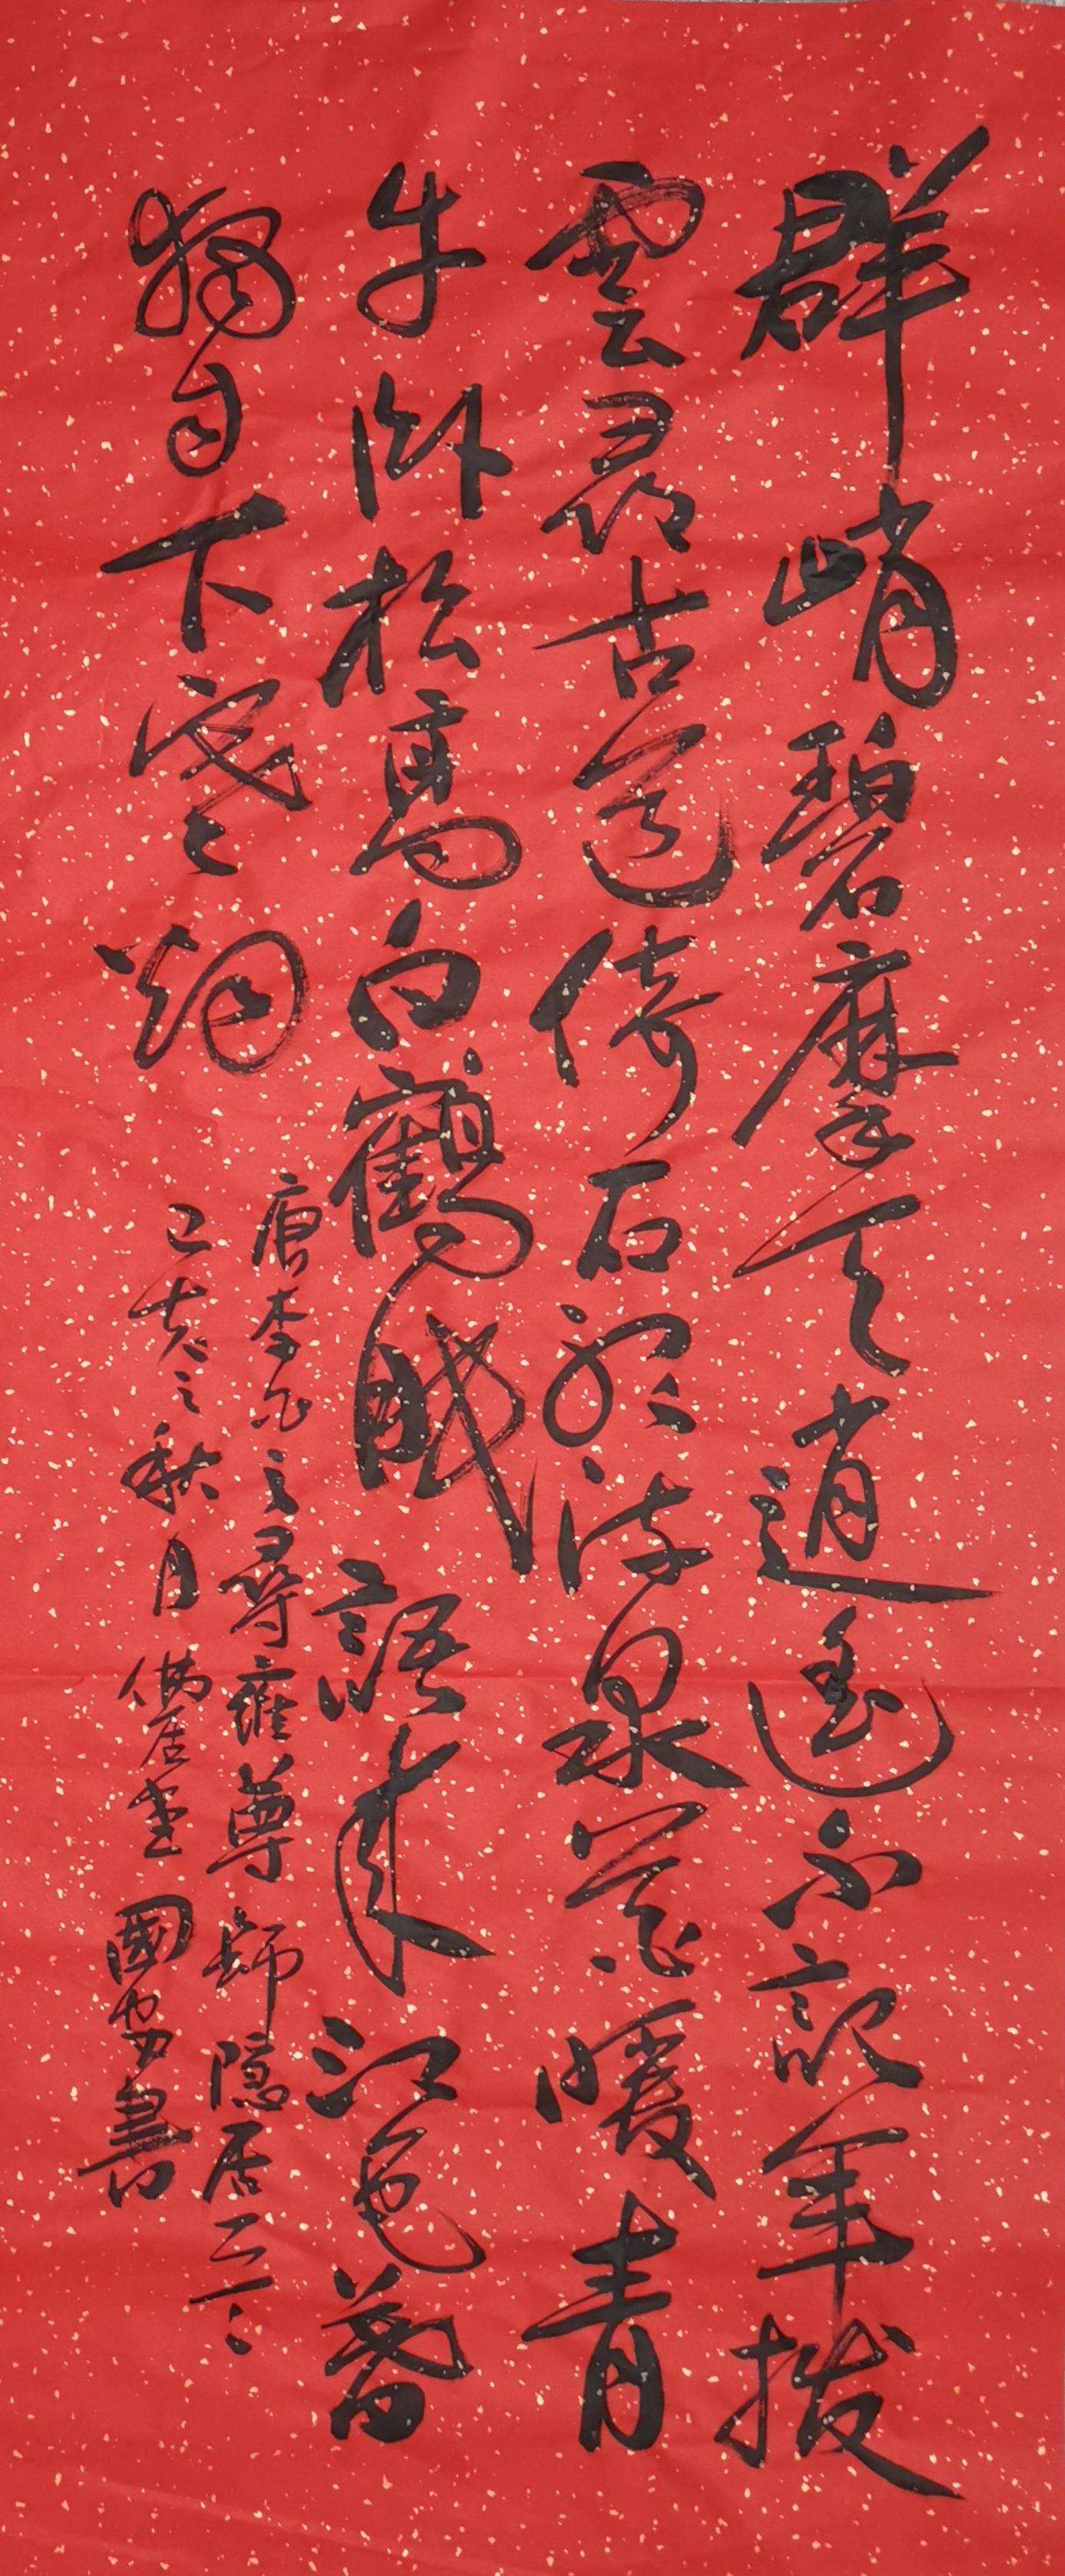 群峭碧摩天逍遥不記年撥
雲尋古道倚石聽流泉花暖青
牛卧松高白鶴眠語来江色暮
獨自下寒烟
唐李白之尋雍尊師隱居
己亥之秋月居堂國書